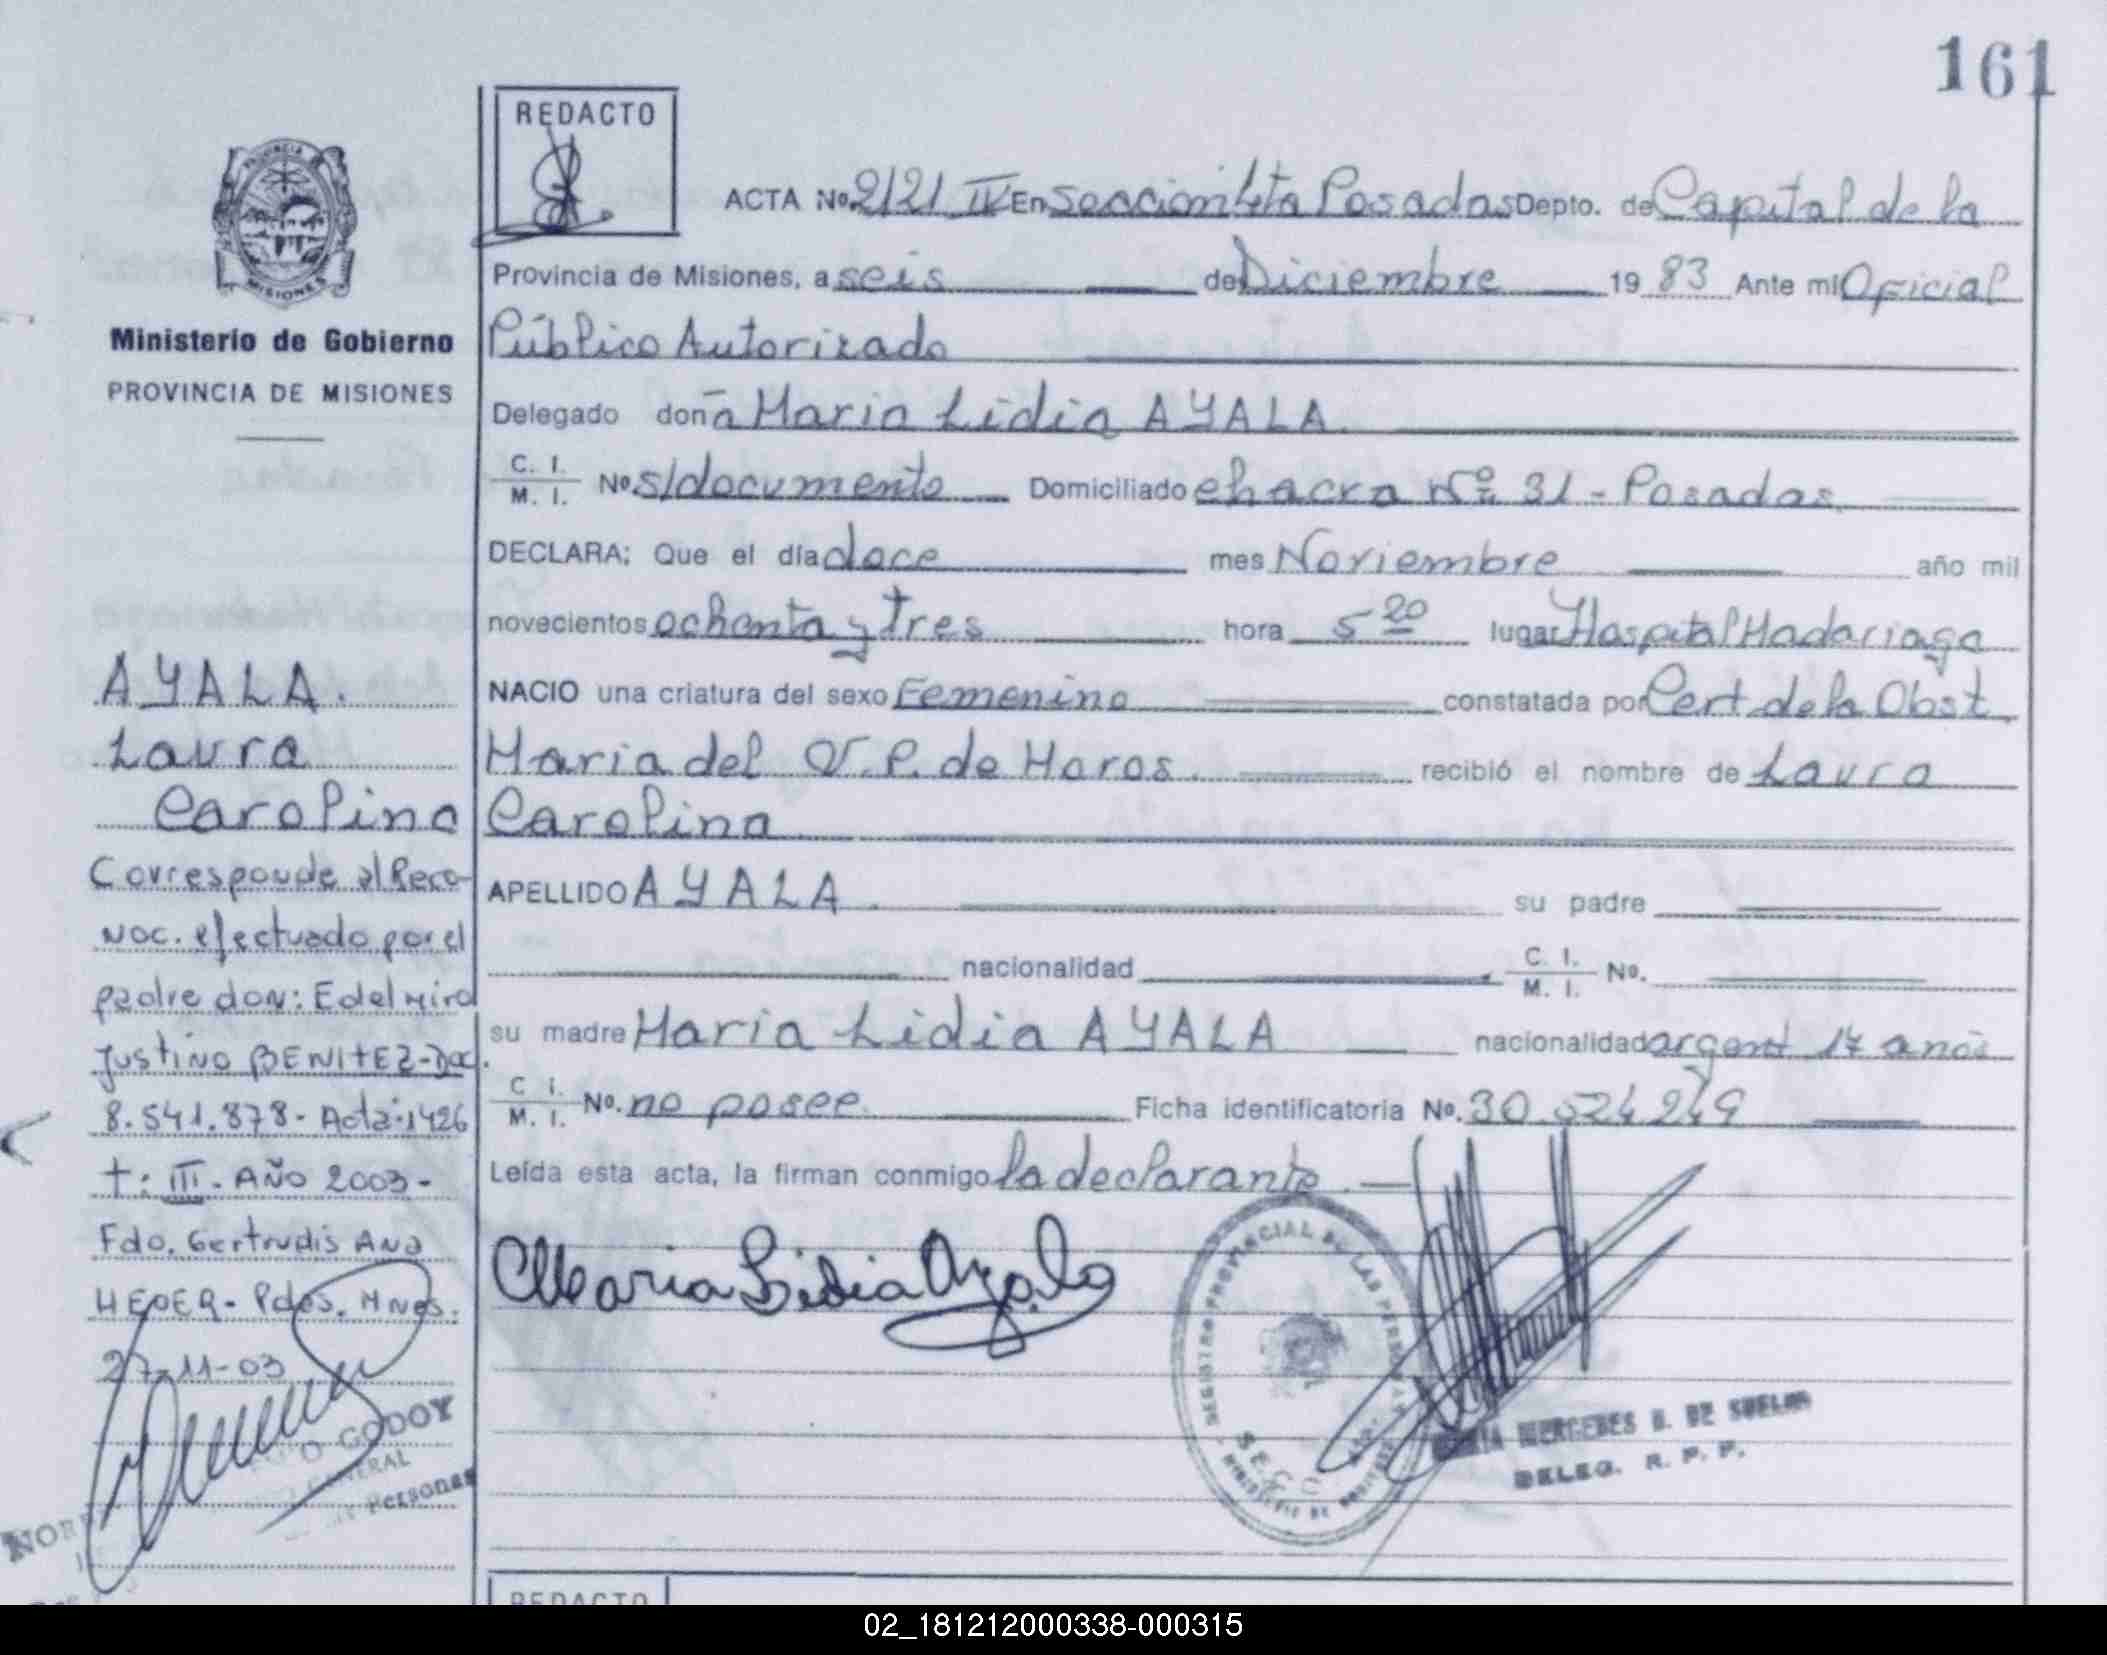 161
REDACTO
ACTA No. 2121 IV En Seccion 4ta Posadas Depto. de Capital de la
Provincia de Misiones, a seis de Diciembre 1983 Ante mi Oficial
Público Autorizado
Delegado doña Maria Lidia AYALA.
C. I. M. I. No s/documento Domiciliado chacra Nº 31 - Posadas
DECLARA: Que el día doce mes Noviembre año mil
novecientos ochenta y tres hora 5 20 lugar Hospital Madariaga
NACIO una criatura del sexo Femenino constatada por Cert. de la Obst.
Maria del V. P. de Moros. recibió el nombre de Laura
Carolina
APELLIDO AYALA. su padre
nacionalidad C. I. M. I. No.
su madre Maria Lidia AYALA nacionalidad argent 17 años
C I. M. I. No. no posee. Ficha identificatoria No. 30.524.249
Leída esta acta, la firman conmigo la declarante.
Maria Lidia Ayala
REGISTRO PROVINCIAL DE LAS PERSONAS
MERCEDES
DELEG. R. P. P.
PROVINCIA
MISIONES
Ministerio de Gobierno
PROVINCIA DE MISIONES
AYALA.
Laura
Carolina
Corresponde al Reco-
noc. efectuado por el
padre don: Edelmiro
Justino BENITEZ-Doc.
8.541.878- Acta-1426
t: III- AÑO 2003-
Fdo. Gertrudis Ana
HEDER- Pdas. Mnes.
27-11-03
GODOY
Personas
REDACTO
02_181212000338-000315